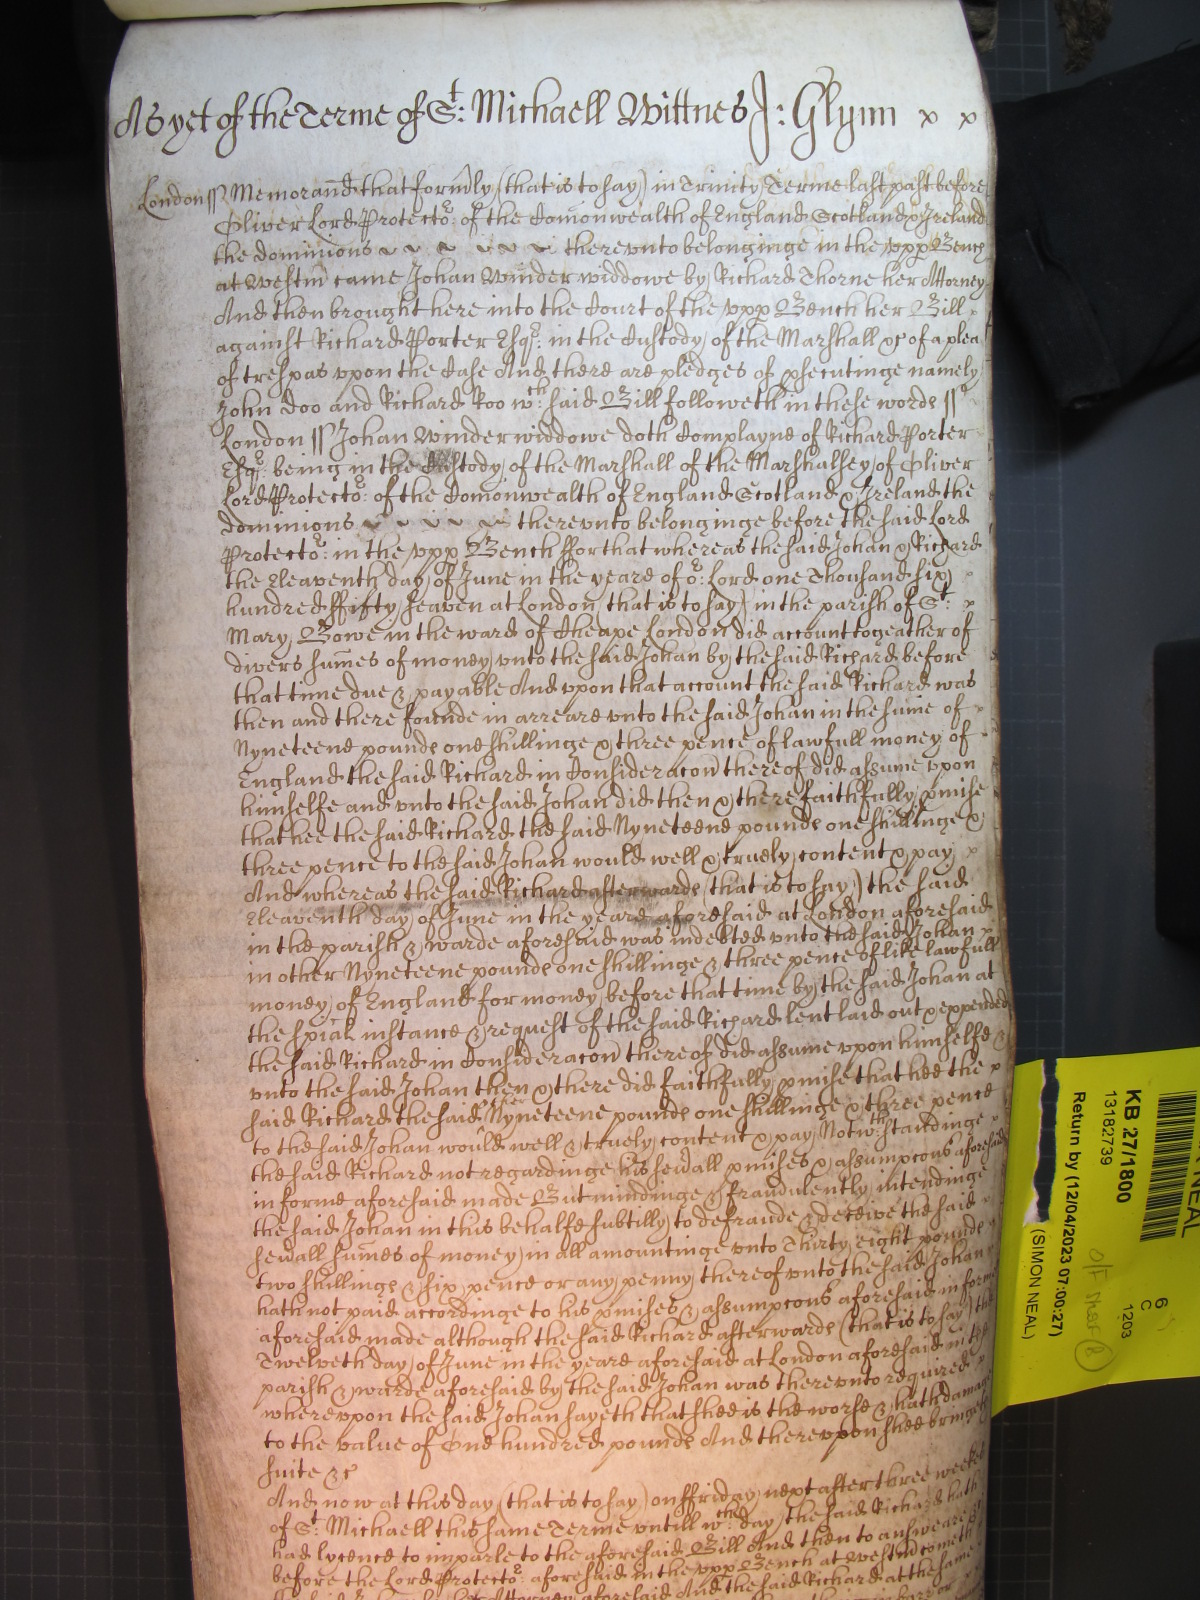 As yet of the Terme of St: Michaell Wittnes J: Glynn x x
London ss Memorand that formly (that is to say) in Trinity Terme last past before
Oliver Lord Protector: of the Comonwealth of England Scotland & Ireland
the dominions thereunto belonginge in the vpp Bench
at Westm came Johan Winder widdowe by Richard Thorne her Attorney
And then brought here into the Court of the vpp Bench her Bill
against Richard Porter Esqr: in the Custody of the Marshall &c of a plea
of trespas vpon the Case And there are pledges of psecutinge namely
John Doo and Richard Roo wch: said Bill followeth in these words ss
London ss Johan Winder widdowe doth Complayne of Richard Porter
Esqr: being in the Custody of the Marshall of the Marshalsey of Oliver
Lord Protector: of the Comonwealth of England Scotland & Ireland the
dominions thereunto belonginge before the said Lord
Protector: in the vpp Bench ffor that whereas the said Johan & Richard
the Eleaventh day of June in the yeare of or: Lord one Thousand six
hundred ffifty seaven at London (that is to say) in the parish of St:
Mary Bowe in the ward of Cheape London did account togeather of
divers sumes of money vnto the said Johan by the said Richard before
that time due & payable And vpon that account the said Richard was
then and there founde in arreare vnto the said Johan in the sume of
Nyneteene pounds one shillinge & three pence of lawfull money of
England the said Richard in Consideracon thereof did assume vpon
himselfe and vnto the said Johan did then & there faithfully pmise
that hee the said Richard the said Nyneteene pounds one shillinge &
three pence to the said Johan would well & truely content & pay
And whereas the said Richard afterwards (that is to say) the said
Eleaventh day of June in the yeare aforesaid at London aforesaid
in the parish & warde aforesaid was indebted vnto the said Johan
in other Nyneteene pounds one shillinge & three pence of like lawfull
money of England for money before that time by the said Johan at
the spial instance & request of the said Richard lent laid out & expended
the said Richard in Consideracon thereof did assume vpon himselfe &
vnto the said Johan then & there did faithfully pmise that hee the
said Richard the said other Nyneteene pounds one shillinge & three pence
to the said Johan would well & truely content & pay Notwthstandinge
the said Richard not regardinge his sevall pmises & assumpcons aforesaid
in forme aforesaid made But mindinge & fraudulently intendinge
the said Johan in this behalfe subtilly to defraude & deceive the said
sevall sumes of money in all amountinge vnto Thirty eight pounds
two shillings & six pence or any penny thereof vnto the said Johan
hath not paid accordinge to his pmises & assumpcons aforesaid in forme
aforesaid made although the said Richard afterwards (that is to say) the
Twelveth day of June in the yeare aforesaid at London aforesaid in the
parish & warde aforesaid by the said Johan was thereunto required
wherevpon the said Johan sayeth that shee is the worse & hath damage
to the value of One hundred pounds And therevpon shee bringeth
suite &c
And now at this day (that is to say) on ffriday next after three weekes
of St: Michaell this same Terme vntill wch: day the said Richard hath
had lycence to imparle to the aforesaid Bill And then to answeare &c
before the Lord Protector: aforesaid in the vpp Bench at Westm cometh
Attorney aforesaid And the said Richard at the same
NEAL
KB 27/1800
13182739
Return by (12/04/2023 07:00:27)
(SIMON NEAL)
6
C
1203